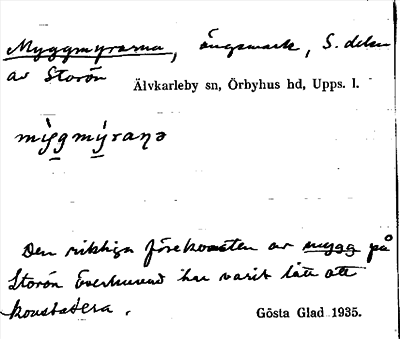 Myggmyrarna, ängsmark, S. delen
av Storön
Älvkarleby sn, Örbyhus hd, Upps. l.
mỳgmýrana
Den rikliga förekomsten av mygg på
Storön överhuvud har varit lätt att
konstatera.
Gösta Glad 1935.